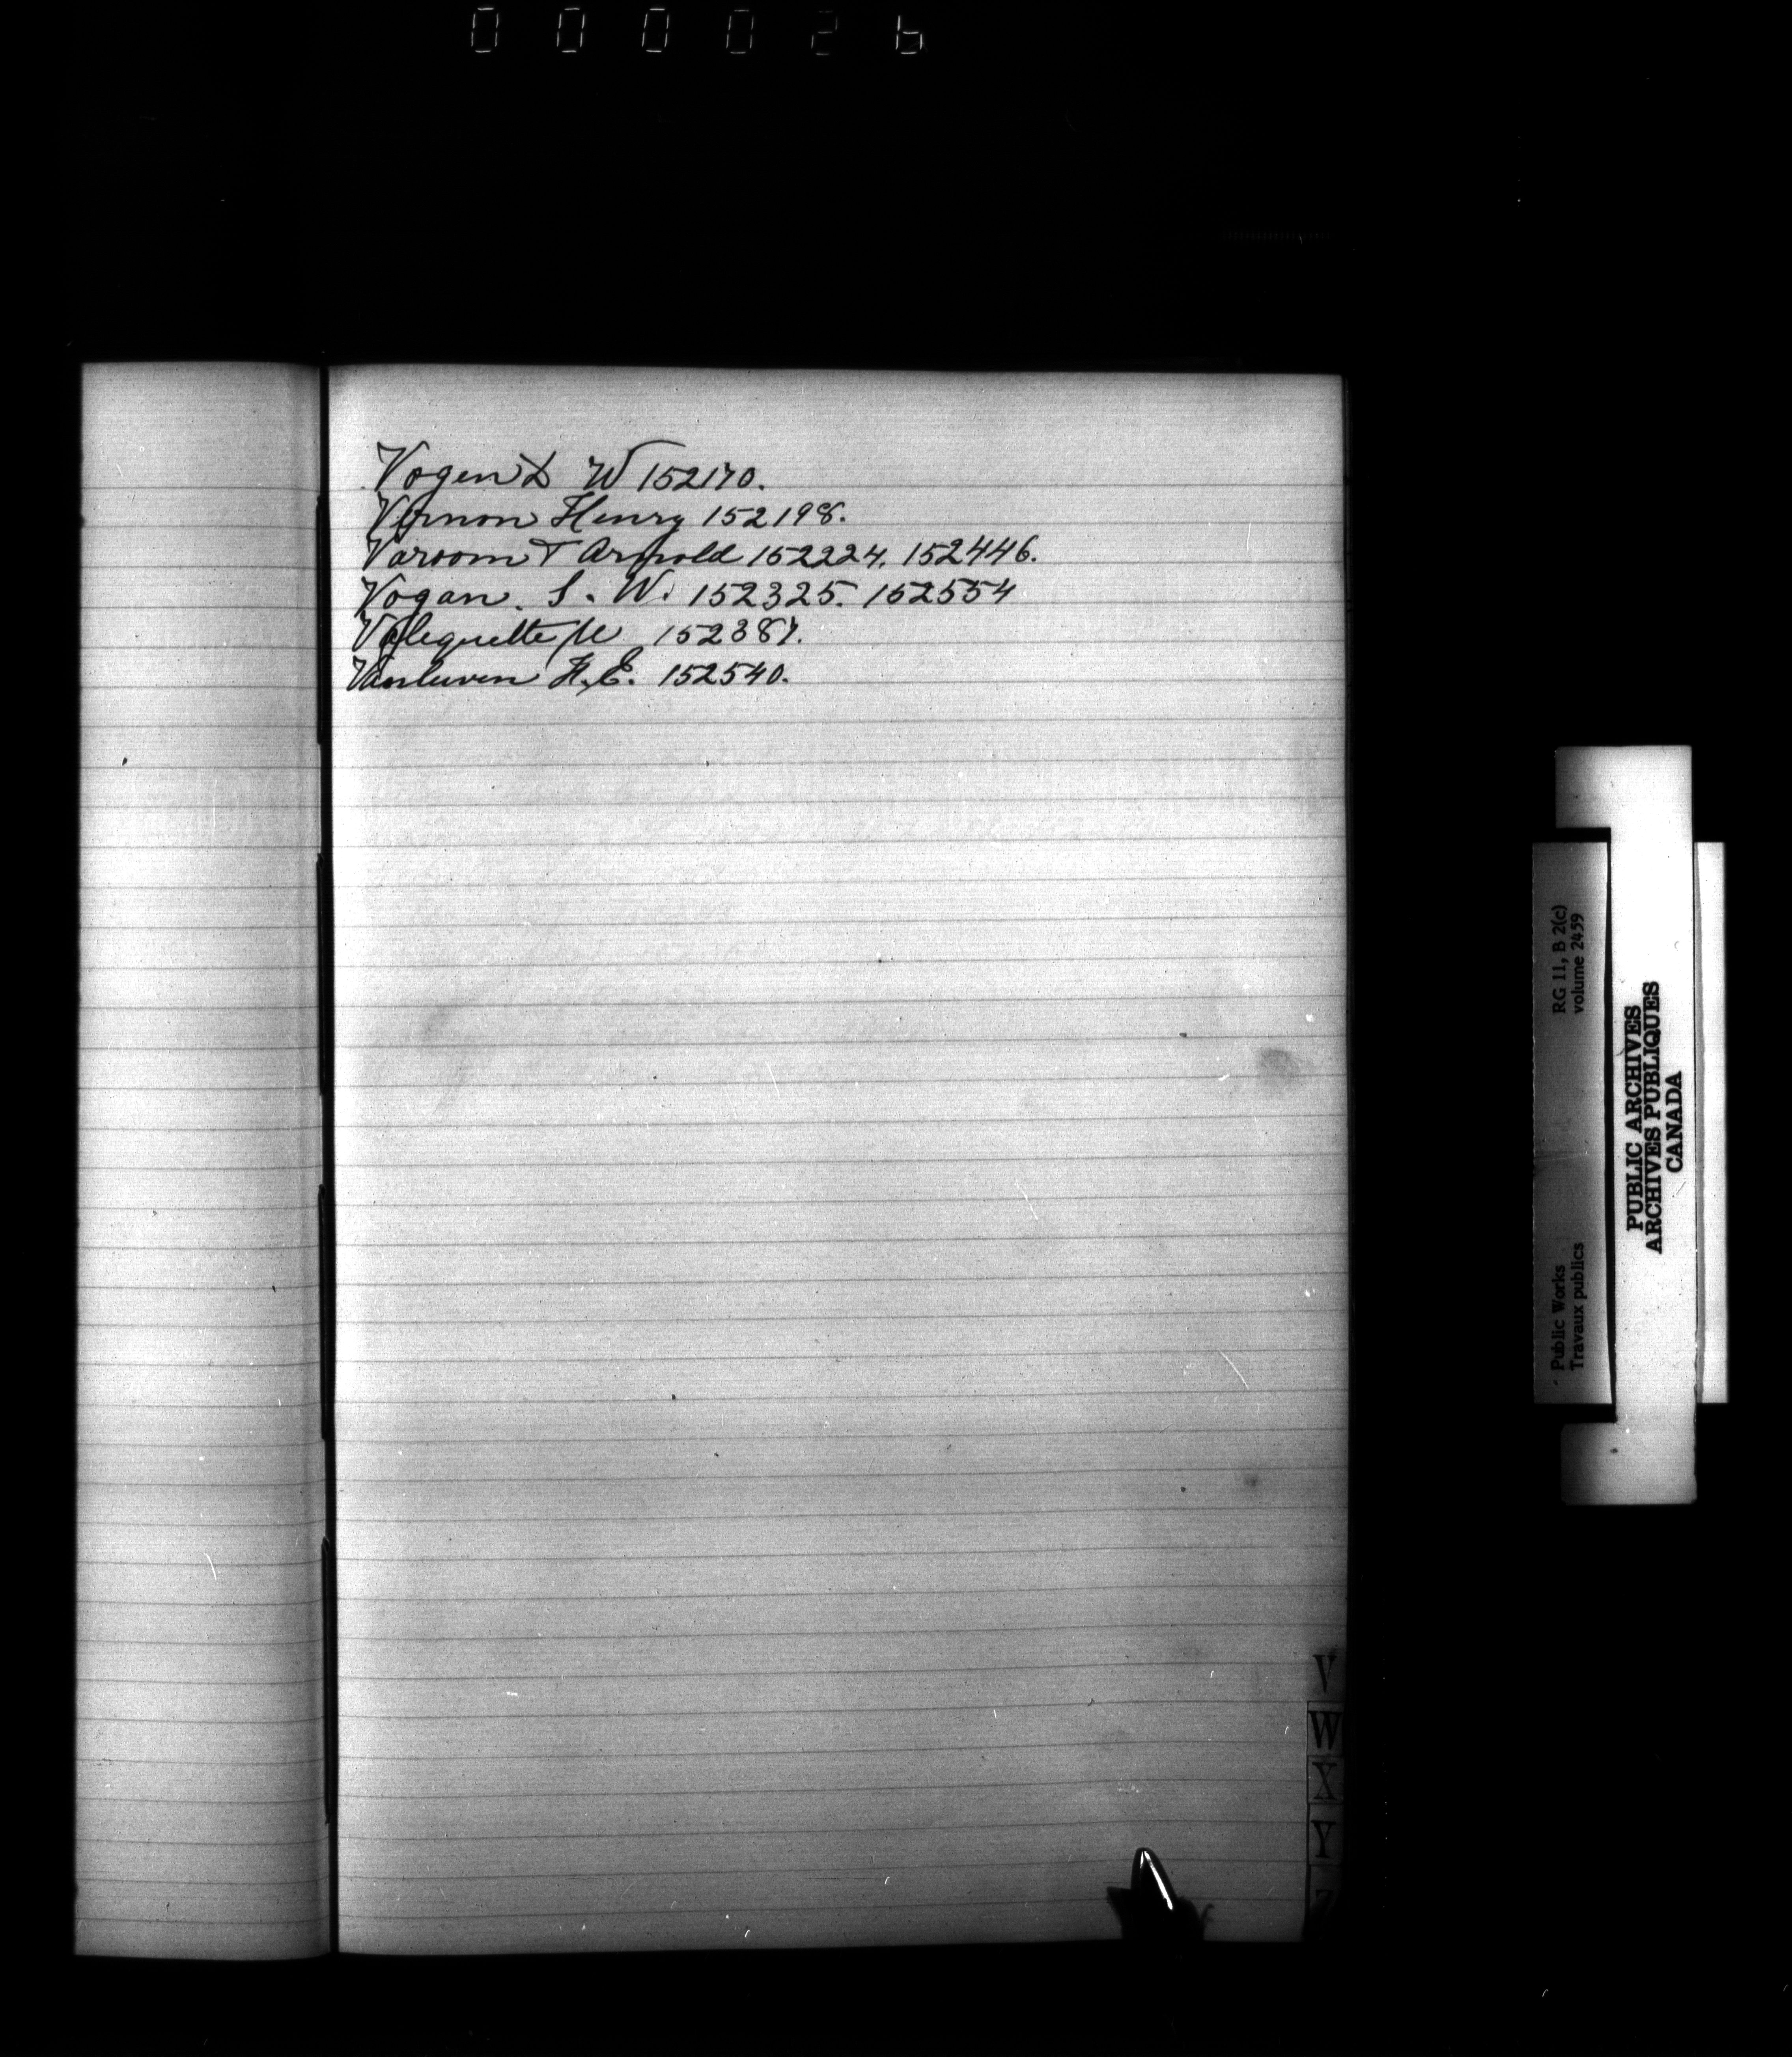 000026
Vogen D W 152170.
Vernon Henry 152198.
Varoom & Arnold 152224. 152446.
Vogan. S. W. 152325. 152554
Valequette M 152387.
Vanluven H. E. 152540.
V
W
X
Y
Z
Public Works RG 11, B 2(c)
Travaux publics volume 2459
PUBLIC ARCHIVES
ARCHIVES PUBLIQUES
CANADA